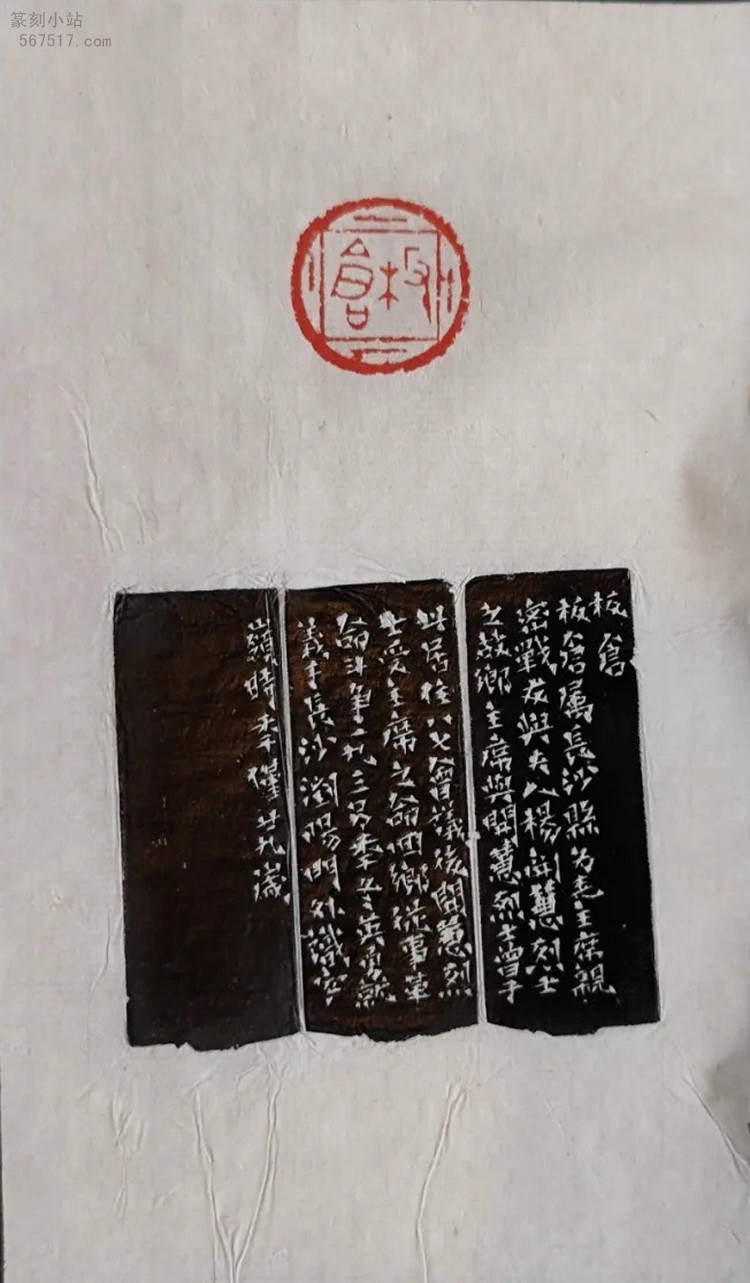 篆刻小站
567517.com
板倉
板倉
板倉属長沙縣为毛主席親
密戰友與夫人楊開慧烈士
之故鄉主席與開慧烈士曾于
此居住八七會議後開慧烈
士受主席之命回鄉從事革
命斗争一九三〇年冬英勇就
義于長沙瀏陽門外識字
嶺時年僅廿九歲